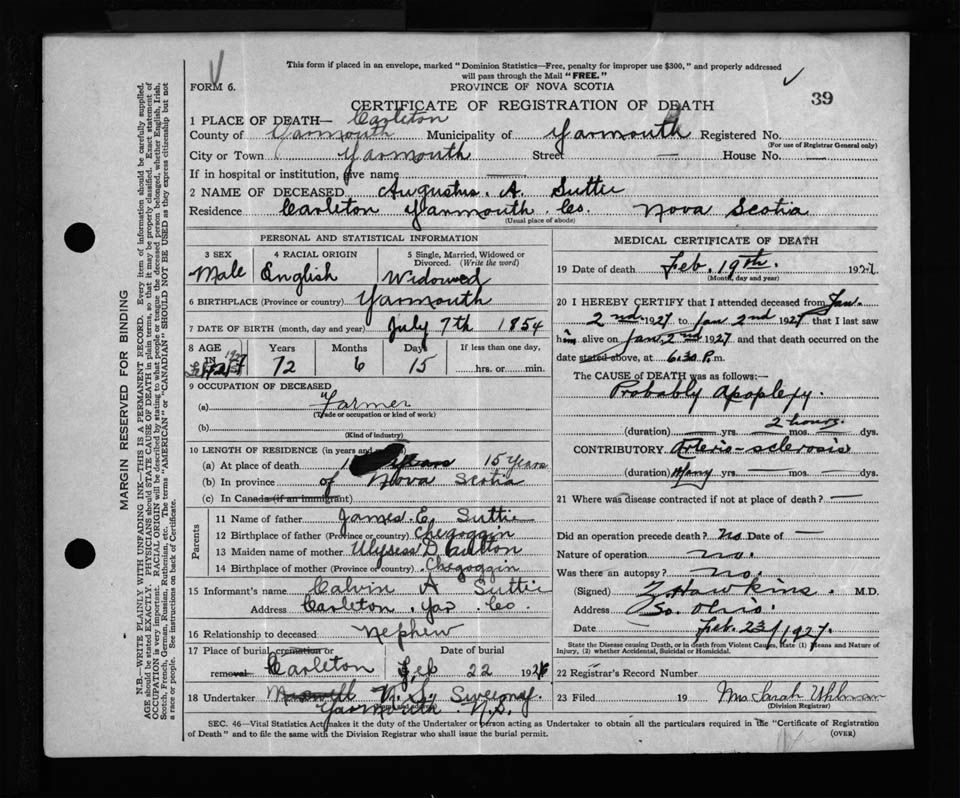 This form if placed in an envelope, marked "Dominion Statistics—Free, penalty for improper use $300," and properly addressed
will pass through the Mail "FREE."
FORM 6.
PROVINCE OF NOVA SCOTIA
39
CERTIFICATE OF REGISTRATION OF DEATH
1 PLACE OF DEATH— Carleton
County of Yarmouth Municipality of Yarmouth Registered No.
(For use of Registrar General only)
City or Town Yarmouth Street — House No. —
If in hospital or institution, give name —
2 NAME OF DECEASED Augustus. A. Suttie
Residence Carleton Yarmouth Co. Nova Scotia
(Usual place of abode)
PERSONAL AND STATISTICAL INFORMATION
3 SEX 4 RACIAL ORIGIN 5 Single, Married, Widowed or
Divorced. (Write the word)
Male English Widowed
6 BIRTHPLACE (Province or country) Yarmouth
7 DATE OF BIRTH (month, day and year) July 7th 1854
8 AGE Years Months Days If less than one day,
IN
72 6 15 hrs. or min.
9 OCCUPATION OF DECEASED
(a) Farmer
(Trade or occupation or kind of work)
(b)
(Kind of industry)
10 LENGTH OF RESIDENCE (in years and
(a) At place of death Years 15 Years
(b) In province of Nova Scotia
(c) In Canada (if an immigrant)
Parents
11 Name of father James E. Suttie
12 Birthplace of father (Province or country) Chegoggin
13 Maiden name of mother Ulysess D.
14 Birthplace of mother (Province or country) Chegoggin
15 Informant's name Calvin A Suttie
Address Carleton. Yar Co.
16 Relationship to deceased Nephew
17 Place of burial cremation or Date of burial
removal Carleton Feb 22 192
18 Undertaker
Yarmouth N.S.
MEDICAL CERTIFICATE OF DEATH
19 Date of death Feb. 19th. 1927
(Month, day and year)
20 I HEREBY CERTIFY that I attended deceased from Jan.
2nd 1927 to Jan 2nd 1927 that I last saw
him alive on Jan. 2nd 1927 and that death occurred on the
date stated above, at 6.30 P.m.
The CAUSE of DEATH was as follows:—
Probably Apoplexy.
2 hours.
(duration) — yrs. — mos. — dys.
CONTRIBUTORY Arterio-sclerosis
(duration) Many yrs. — mos. — dys.
21 Where was disease contracted if not at place of death? —
Did an operation precede death? no Date of —
Nature of operation no.
Was there an autopsy? no.
(Signed) Z. Hawkins. M.D.
Address So. Ohio.
Date Feb. 23/1927.
State the Disease causing Death, or in death from Violent Causes, state (1) Means and Nature of
Injury, (2) whether Accidental, Suicidal or Homicidal.
22 Registrar's Record Number
23 Filed 19 Mrs Sarah Uhlman
(Division Registrar)
SEC. 46—Vital Statistics Act makes it the duty of the Undertaker or person acting as Undertaker to obtain all the particulars required in the "Certificate of Registration
of Death" and to file the same with the Division Registrar who shall issue the burial permit.
(OVER)
MARGIN RESERVED FOR BINDING
N.B.—WRITE PLAINLY WITH UNFADING INK—THIS IS A PERMANENT RECORD. Every item of information should be carefully supplied.
AGE should be stated EXACTLY. PHYSICIANS should STATE CAUSE OF DEATH in plain terms, so that it may be properly classified. Exact statement of
OCCUPATION is very important. RACIAL ORIGIN will be described by stating to what people or tongue the deceased person belonged, whether English, Irish,
Scotch, French, German, Russian, Ruthenian, etc. The terms "AMERICAN" or "CANADIAN" SHOULD NOT BE USED as they express citizenship but not
a race or people. See instructions on back of Certificate.